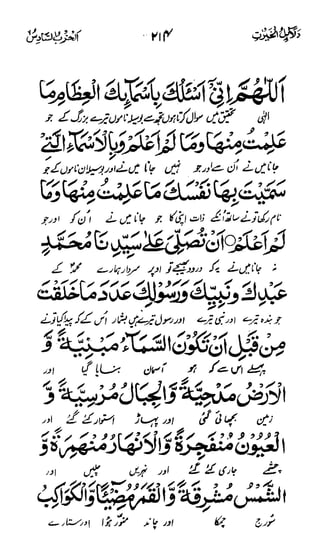 دلائل الخیرات ۲۱۴ الحزب السادس
اَللّٰهُمَّ اِنِّیْ اَسْئَلُكَ بِاَسْمَآئِكَ الْعِظَامِ مَا
الٰہی تحقیق میں سوال کرتا ہوں تجھ سے بوسیلہ ناموں تیرے بزرگ کے جو
عَلِمْتُ مِنْهَا وَمَا لَمْ اَعْلَمْ وَبِالْاَسْمَآءِ الَّتِیْ
جانا میں نے اُن سے اور جو نہیں جانا میں نے اور بوسیلہ ان ناموں کے جو
سَمَّیْتَ بِهَا نَفْسَكَ مَا عَلِمْتُ مِنْهَا وَمَا
نام رکھا تو نے ساتھ اُنکے ذات اپنی کا جو جانا میں نے اُن کو اور جو
لَمْ اَعْلَمْ ○ اَنْ تُصَلِّیَ عَلٰی سَیِّدِنَا مُحَمَّدٍ
نہ جانا میں نے یہ کہ درود بھیجے تو اوپر سردار ہمارے محمدؐ کے
عَبْدِكَ وَنَبِیِّكَ وَرَسُوْلِكَ عَدَدَ مَا خَلَقْتَ
جو بندہ تیرے اور نبی تیرے اور رسول تیرے ہیں بشمار اُس کے کہ پیدا کیا تو نے
مِنْ قَبْلِ اَنْ تَكُوْنَ السَّمَآءُ مَبْنِیَّةً وَّ
پہلے اس سے کہ ہو آسمان بنایا گیا اور
الْاَرْضُ مَدْحِیَّةً وَّالْجِبَالُ مُرْسِیَةً وَّ
زمین بچھائی گئی اور پہاڑ استوار کئے گئے اور
الْعُیُوْنُ مُنْفَجِرَةً وَّالْاَنْهَارُ مُنْهَمِرَةً وَّ
چشمے جاری کئے گئے اور نہریں چلیں اور
الشَّمْسُ مُشْرِقَةً وَّالْقَمَرُ مُضِیْٓئًا وَّالْكَوَاكِبُ
سورج چمکا اور چاند منور ہوا اور ستارے